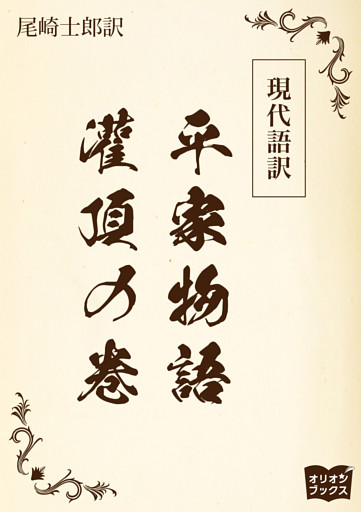 現代語訳
平家物語
灌頂の巻
尾崎士郎訳
オリオン
ブックス